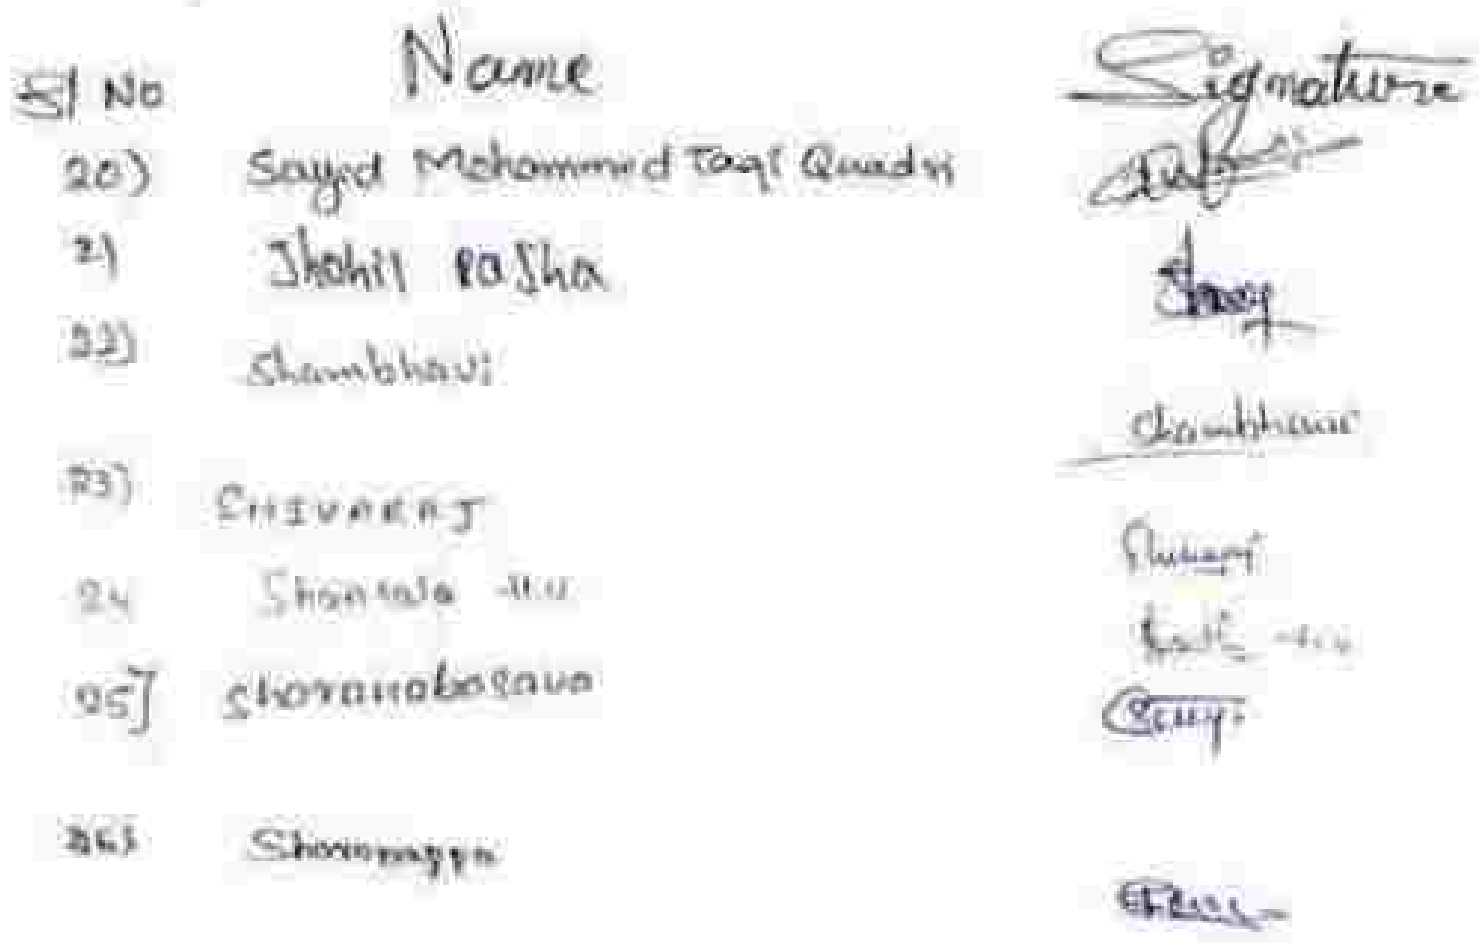 Sl No Name Signature
20) Sayed Mohammed Taqi Quadri
21 Shohil Pasha
22) Shambhavi Shambhavi
23) SHIVARAJ
24
25] Sharanabasava
26) Sharanappa